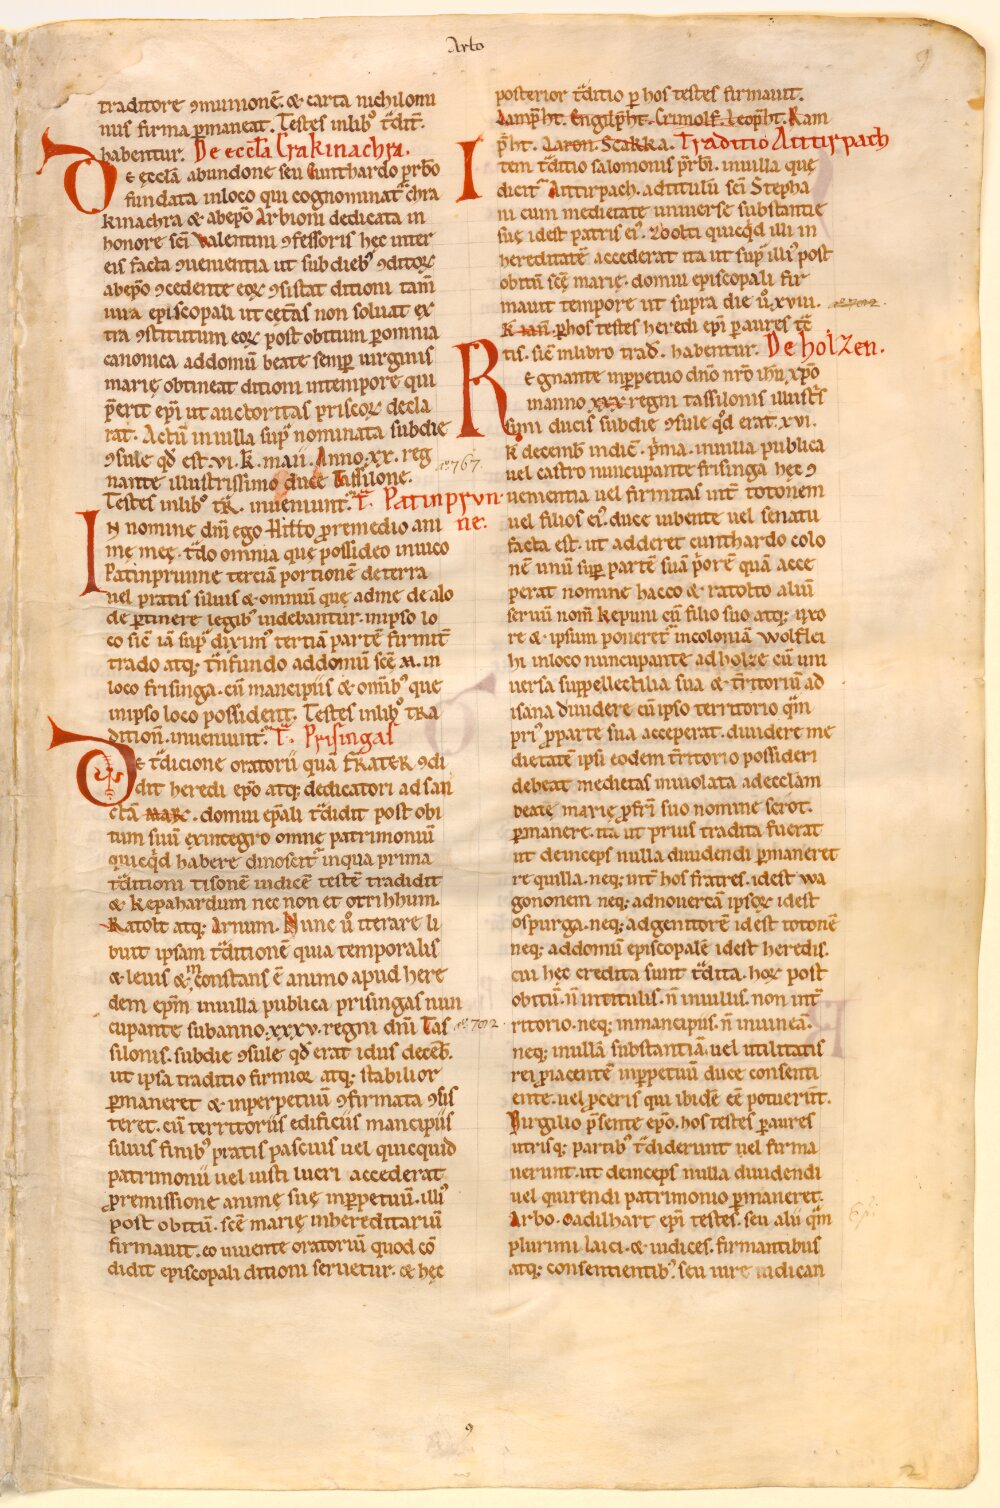 Arbo
9
traditore ꝯmunionē. & carta nichilomi
nus firma ꝑmaneat. Testes inlibꝰ t̄dit̄.
habentur. De eccl̄a Crakinachra.
De ęccl̄a abundone seu Cunthardo p̄rbo
fundata inloco qui cognominat᷑ chra
kinachra & abep̄o Arbioni dedicata in
honore sc̄i Valentini ꝯfessoris hęc inter
eis facta ꝯuenientia ut sub diebꝰ ꝯditoꝝ
abep̄o ꝯcedente eoꝝ ꝯsistat ditioni tam̄
uira episcopali ut cet̄as non soluat ex
tra ꝯstitutum eoꝝ post obitum ꝑomnia
canonica addomū beate semꝑ uirginis
marię obtineat ditioni intempore qui
p̄erit ep̄i ut auctoritas priscoꝝ decla
rat. Actū inuilla sup̄ nominata subdie
ꝯsule qd̄ est. vi. k̄. maii. Anno. xx. reg
nante illustrissimo duce Tassilone.
a°767.
Testes inlibꝰ tr̄. inueniunt᷑. T̄. Patinprvn
ne.
In nomine dn̄i ego Hitto ꝓremedio ani
mę meę. t̄do omnia quę possideo inuico
Patinprunne terciā portionē de terra
uel pratis siluis & omniū que adme de alo
de ꝑtinere legibꝰ uidebantur. inipso lo
co sic̄ iā sup̄ diximꝰ tertiā partē firmit̄
trado atq; t̄nfundo addomū scē M. in
loco frisinga. cū mancipiis & om̄ibꝰ que
inipso loco possident̄. Testes inlibꝰ tra
dition̄. inueniunt᷑. T̄. Prisingas
De t̄dicione oratorii quā frater ꝯdi
dit heredi ep̄o atq; dedicatori ad san
ctā mar. domui ep̄ali t̄didit post obi
tum suū exintegro omne patrimoniū
quicq̄d habere dinoscit᷑ inqua prima
t̄ditioni tisonē iudicē testē tradidit
& kepahardum nec non et otrihhum.
Ratolt atq; Arnum. Nunc ū iterare li
buit ipsam t̄ditionē quia temporalis
& leuis & inconstans ē animo apud here
dem ep̄m inuilla publica prisingas nun
cupante subanno. xxxv. regni dn̄i Tas
silonis. subdie ꝯsule qd̄ erat idus deceb̄.
ut ipsa traditio firmior atq; stabilior
ꝑmaneret & inperpetuū ꝯfirmata ꝯsis
teret. cū territoriis edificiis mancipiis
siluis finibꝰ pratis pascuis uel quicquid
patrimonii uel iusti lucri accederat
ꝓremissione animę suę inꝑpetuū. illiꝰ
post obitū. scē marię inhereditariū
firmauit. eo uiuente oratoriū quod cō
didit episcopali ditioni seruetur. & hęc
posterior t̄ditio ꝑ hos testes firmauit.
Lamp̄ht. Engilp̄ht. Crimolf. Leop̄ht. Ram
p̄ht. Aaron. Scakka. Traditio Aittirpach
Item t̄ditio salomonis p̄rbi. inuilla quę
dicit᷑ Aittirpach. adtitulū sc̄i Stepha
ni cum medietate uniuerse substantie
suę idest patris eiꝰ. Wolti quicq̄d illi in
hereditatē accederat ita ut sup̄ illiꝰ post
obitū scē marię. domui episcopali fir
mauit tempore ut supra die ū. xviii.
K̄ ian̄. ꝑhos testes heredi ep̄i ꝑaures t̄c
tis. sic̄ inlibro trad̄. habentur. De holzen.
Regnante inꝑpetuo dn̄o nr̄o ih̄u xp̄o
inanno xxx regni tassilonis illustris
simi ducis subdie ꝯsule qd̄ erat. xvi.
k̄ decemb̄ indic̄. p̄ma. inuilla publica
uel castro nuncupante frisinga hęc ꝯ
uenientia uel firmitas int̄ totonem
uel filios eiꝰ. duce iubente uel senatu
facta est. ut adderet cunthardo colo
nē unū suꝑ partē suā p̄orē quā acce
perat nomine hacco & ratolto aliū
seruū nom̄ kepuni cū filio suo atq; uxo
re & ipsum poneret᷑ incoloniā wolflei
hi inloco nuncupante ad holze cū uni
uersa suppellectilia sua & t̄ritoriū ad
isana diuidere cū ipso territorio qm̄
priꝰ ꝓparte sua acceperat. diuidere me
dietatē ipsi eodem t̄ritorio possideri
debeat medietas inuiolata adecclām
beatę marię ꝓfr̄i suo nomine scrot.
ꝑmanere. ita ut prius tradita fuerat
ut deinceps nulla diuidendi ꝑmaneret
re quilla. neq; int̄ hos fratres. idest wa
gononem neq; adnouercā ipsoꝝ idest
ospurga. neq; adgenitorē idest totonē
neq; addomū episcopalē idest heredis.
cui hęc credita sunt t̄dita. hoꝝ post
obitū. n̄ intitulis. n̄ inuillis. non int̄
ritorio. neq; inmancipiis. n̄ inuineā.
neq; inullā substantiā. uel utilitatis
rei ꝓiacentē inꝑpetuū duce consenti
ente. uel ꝓceris qui ibidē eē potuerūt.
Virgilio p̄sente ep̄o. hos testes ꝑaures
utrisq; partibꝰ t̄diderunt uel firma
uerunt. ut deinceps nulla diuidendi
uel quirendi patrimonio ꝑmaneret.
Arbo. Oadilhart ep̄i testes. seu alii qm̄
plurimi laici. & iudices. firmantibus
atq; consentientibꝰ. seu iure iudican
9
2